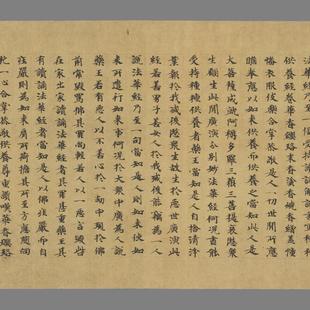 法華經乃至一句受持讀誦解說書寫種種
供養經卷華香瓔珞末香塗香燒香繒蓋幢
幡衣服伎樂合掌恭敬是人一切世間所應
瞻奉應以如來供養而供養之當知此人是
大菩薩成就阿耨多羅三藐三菩提哀愍眾
生願生此間廣演分別妙法華經何況盡能
受持種種供養者藥王當知是人自捨清淨
業報於我滅度後愍眾生故生於惡世廣演此
經若是善男子善女人我滅度後能竊為一人
說法華經乃至一句當知是人則如來使如
來所遣行如來事何況於大眾中廣為人說
藥王若有惡人以不善心於一劫中現於佛
前常毀罵佛其罪尚輕若人以一惡言毀呰
在家出家讀誦法華經者其罪甚重藥王其
有讀誦法華經者當知是人以佛莊嚴而自
莊嚴則為如來肩所荷擔其所至方應隨向
禮一心合掌恭敬供養尊重讚歎華香瓔珞